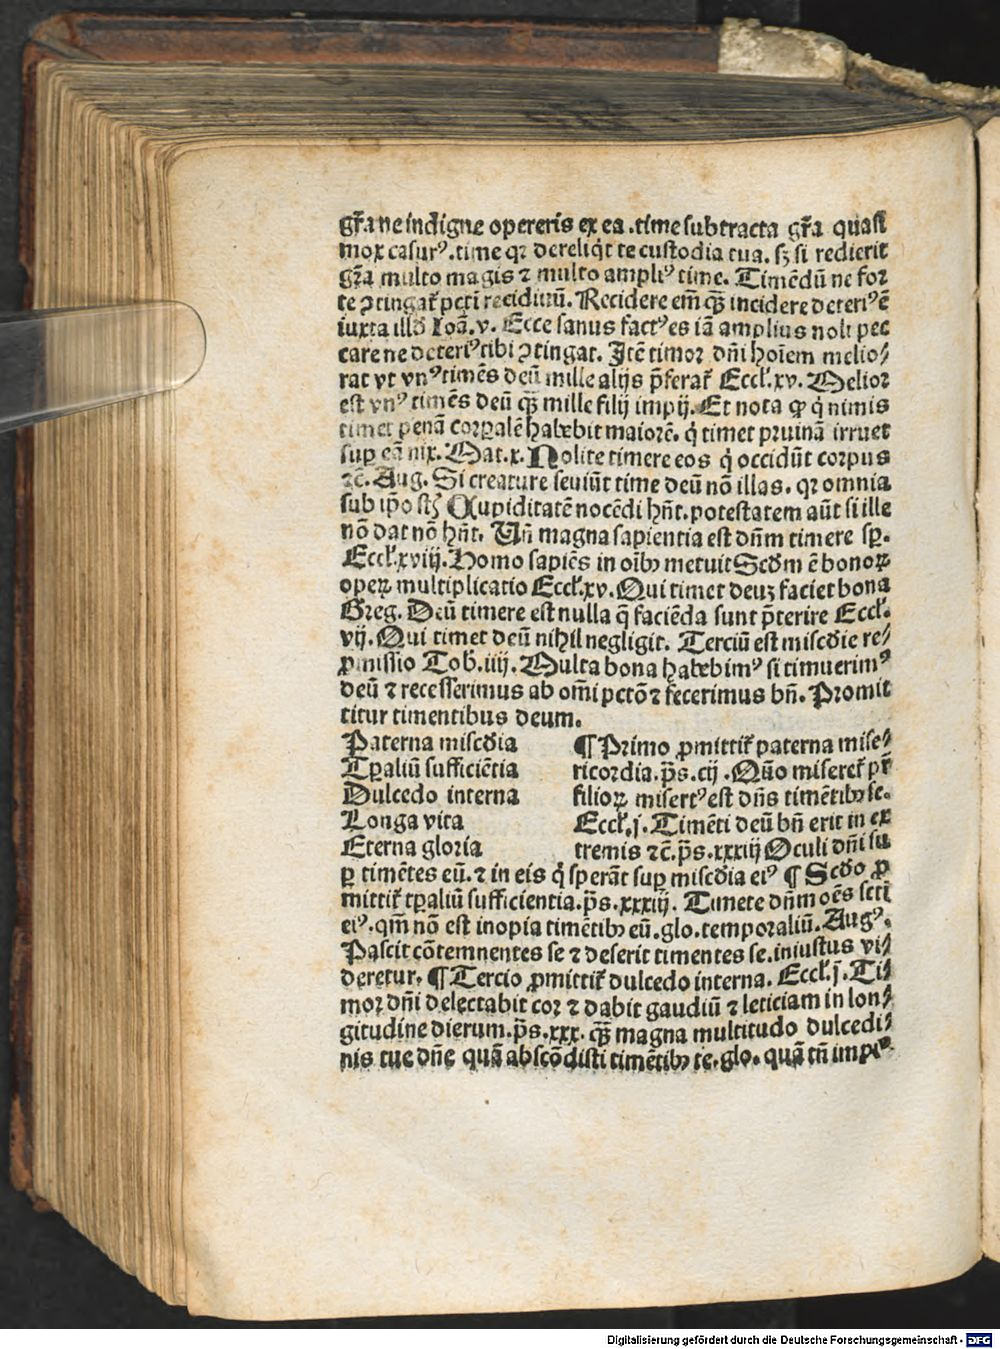 gr̄a ne indigne opereris ex ea .time subtracta gr̄a quasi
mox casurꝰ.time qꝛ dereliq̇t te custodia tua. sꝫ si redierit
gr̄a multo magis ⁊ multo ampliꝰ time. Timēdū ne for
te ꝯtingat̄ pctī recidiuū. Recidere em̄ qꝫ̄ incidere deteriꝰ ē
iuxta illđ Ioā.v. Ecce sanus factꝰ es iā amplius noli pec
care ne deteriꝰ tibi ꝯtingat. Itē timoꝛ dn̄i hoīem melio⸗
rat vt vnꝰ timēs deū mille alijs p̄ferat̄ Eccl̄.xv. Melioꝛ
est vnꝰ timēs deū qꝫ̄ mille filij impij. Et nota ꝙ q̇ nimis
timet penā coꝛꝑalē habebit maioꝛē. q̇ timet pruinā irruet
suꝑ eā nix. Mat.x. Nolite timere eos q̇ occidūt coꝛpus
⁊c̄. Aug. Si creature seuiūt time deū nō illas. qꝛ omnia
sub ip̄o st̄ Cupiditatē nocēdi hn̄t. potestatem aūt si ille
nō dat nō hn̄t. Vn̄ magna sapientia est dn̄m timere sꝑ.
Eccl̄.xviij. Homo sapiēs in oībꝫ metuit Scđm ē bonoꝝ
opeꝝ multiplicatio Eccl̄.xv. Qui timet deuꝫ faciet bona
Greg. Deū timere est nulla q̄ faciēda sunt p̄terire Eccl̄.
vij. Qui timet deū nihil negligit. Terciū est miscđie re⸗
ꝓmissio Tob̄.iiij. Multa bona habebimꝰ si timuerimꝰ
deū ⁊ recesserimus ab om̄i pctō ⁊ fecerimus bn̄. Promit
titur timentibus deum.
Paterna miscđia
Tꝑaliū sufficiētia
Dulcedo interna
Longa vita
Eterna gloria
¶ Primo ꝓmittit̄ paterna mise⸗
ricordia.p̄s.cij .Quō miseret̄ pr̄
filioꝝ misertꝰ est dn̄s timētibꝫ se.
Eccl̄.j. Timēti deū bn̄ erit in ex
tremis ⁊c̄.p̄s.xxxiij Oculi dn̄i su
ꝑ timētes eū. ⁊ in eis q̇ sperāt suꝑ miscđia eiꝰ ¶ Scđo ꝓ
mittit̄ tꝑaliū sufficientia.p̄s.xxxiij. Timete dn̄m oēs sctī
eiꝰ. qm̄ nō est inopia timētibꝫ eū.glo.tempoꝛaliū. Augꝰ.
Pascit cōtemnentes se ⁊ deserit timentes se.iniustus vi⸗
deretur. ¶ Tercio ꝓmittit̄ dulcedo interna. Eccl̄.j. Ti⸗
moꝛ dn̄i delectabit coꝛ ⁊ dabit gaudiū ⁊ leticiam in lon⸗
gitudine dierum.p̄s.xxx. qꝫ̄ magna multitudo dulcedi⸗
nis tue dn̄e quā abscōdisti timētibꝫ te.glo. quā tn̄
Digitalisierung gefördert durch die Deutsche Forschungsgemeinschaft - DFG